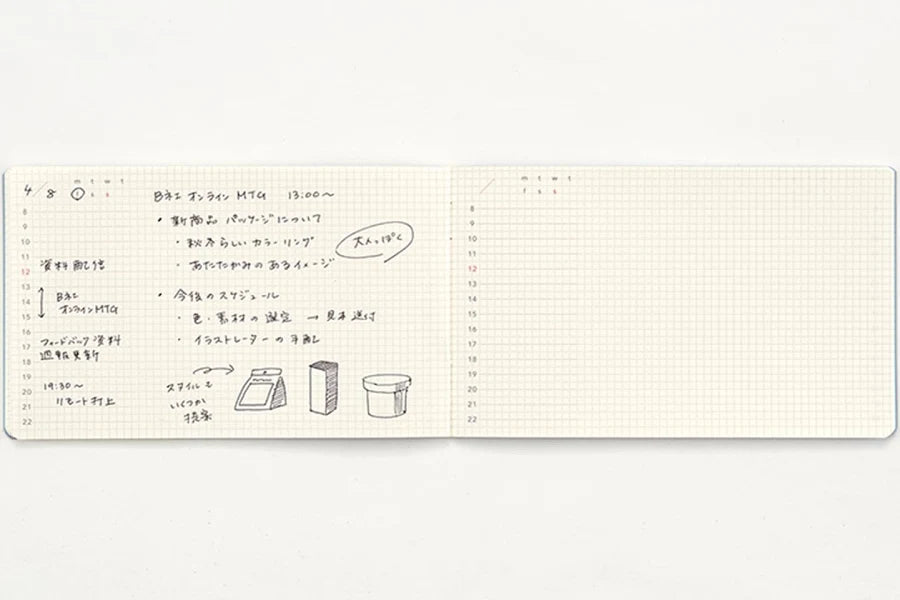 4/8
m t w t
f s s
8
9
10
11
12
13
14
15
16
17
18
19
20
21
22
資料配信
B社
オンラインMTG
フィードバック資料
週報更新
19:30〜
リモート村上
B社 オンライン MTG 13:00〜
・新商品 パッケージについて
・秋冬らしい カラーリング
・あたたかみのあるイメージ
大人っぽく
・今後のスケジュール
・色・素材の選定 → 見本送付
・イラストレーターの手配
スタイルも
いくつか
提案
m t w t
f s s
8
9
10
11
12
13
14
15
16
17
18
19
20
21
22